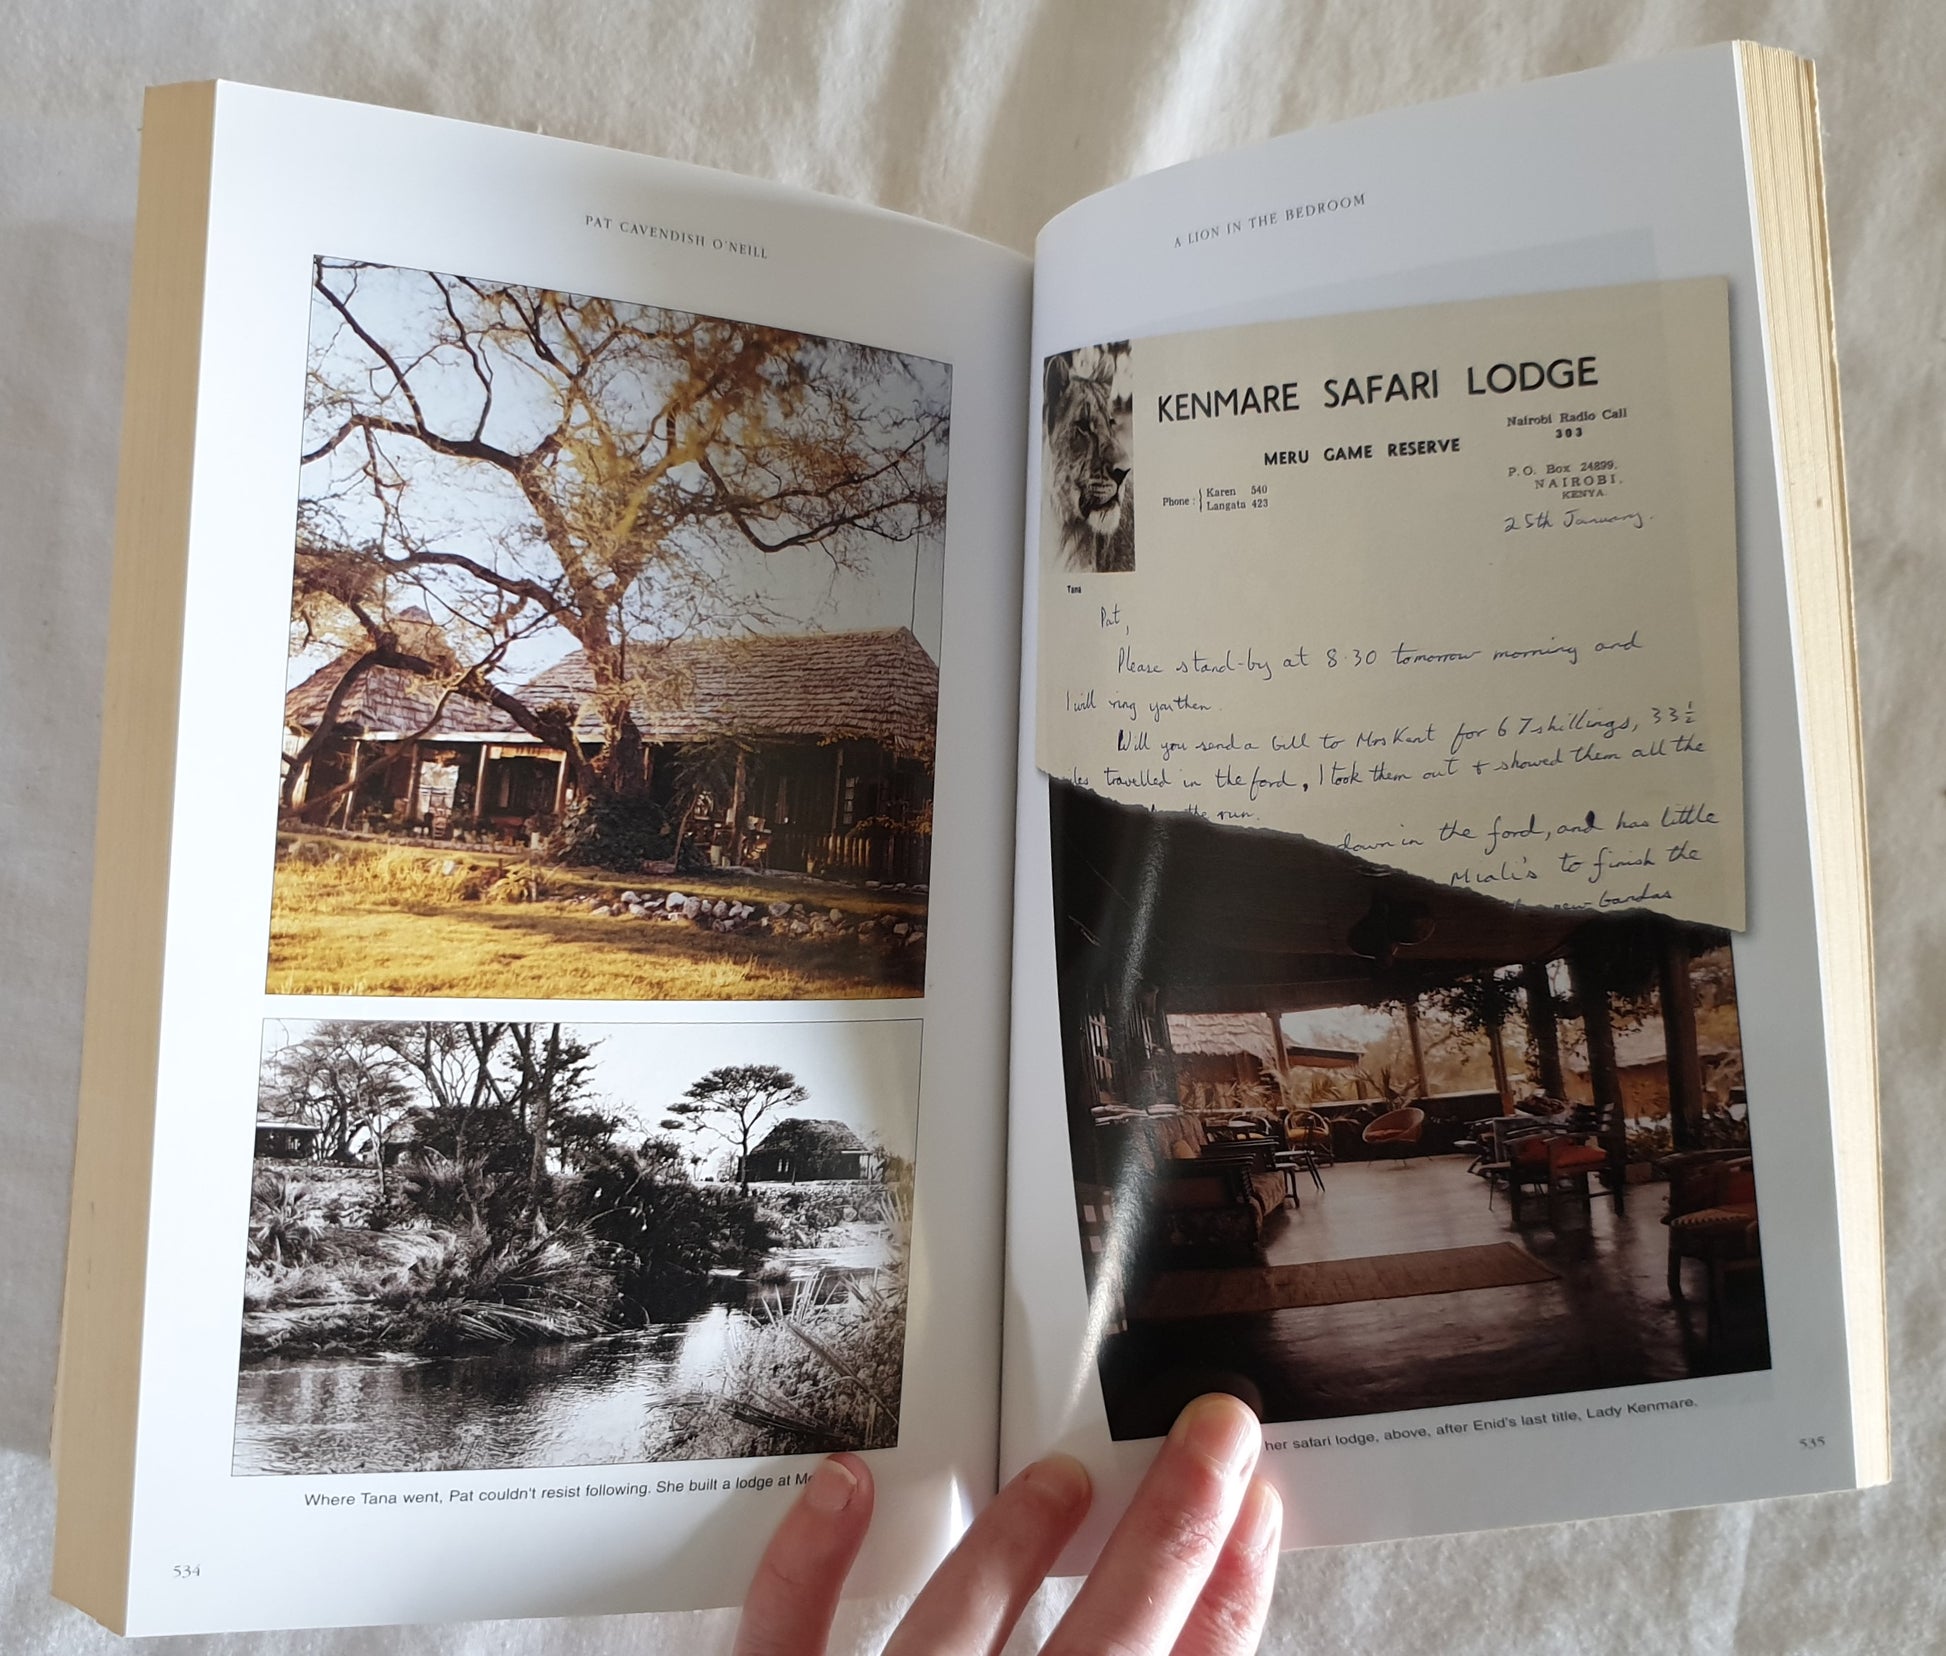 PAT CAVENDISH O'NEILL
Where Tana went, Pat couldn't resist following. She built a lodge at
534
A LION IN THE BEDROOM
KENMARE SAFARI LODGE
MERU GAME RESERVE
Nairobi Radio Call
303
P.O. Box 24899.
NAIROBI,
KENYA.
Phone : Karen 540
Langata 423
25th January.
Tana
Pat,
Please stand-by at 8.30 tomorrow morning and
I will ring you then.
Will you send a bill to Mrs Kent for 67 shillings, 33½
travelled in the ford, I took them out & showed them all the
the run.
down in the ford, and has little
to finish the
new bandas
her safari lodge, above, after Enid's last title, Lady Kenmare.
535